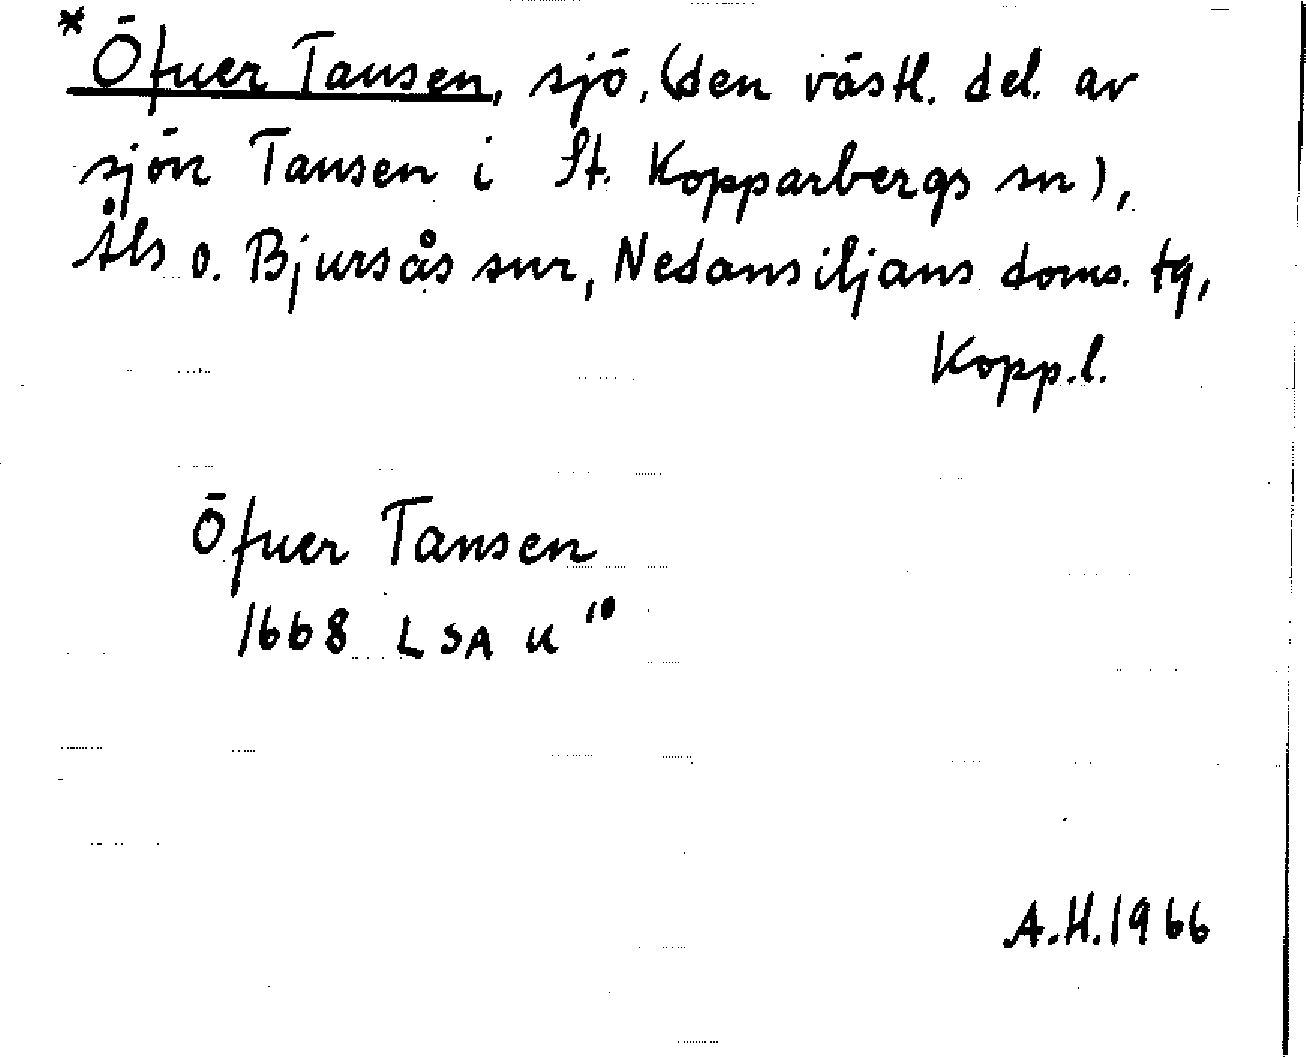 * Öfuer Tansen, sjö, (den västl. del. av
sjön Tansen i St. Kopparbergs sn),
Åls o. Bjursås snr, Nedansiljans doms. tg,
Kopp.l.
Öfuer Tansen
1668 LSA U 10
A.H.1966